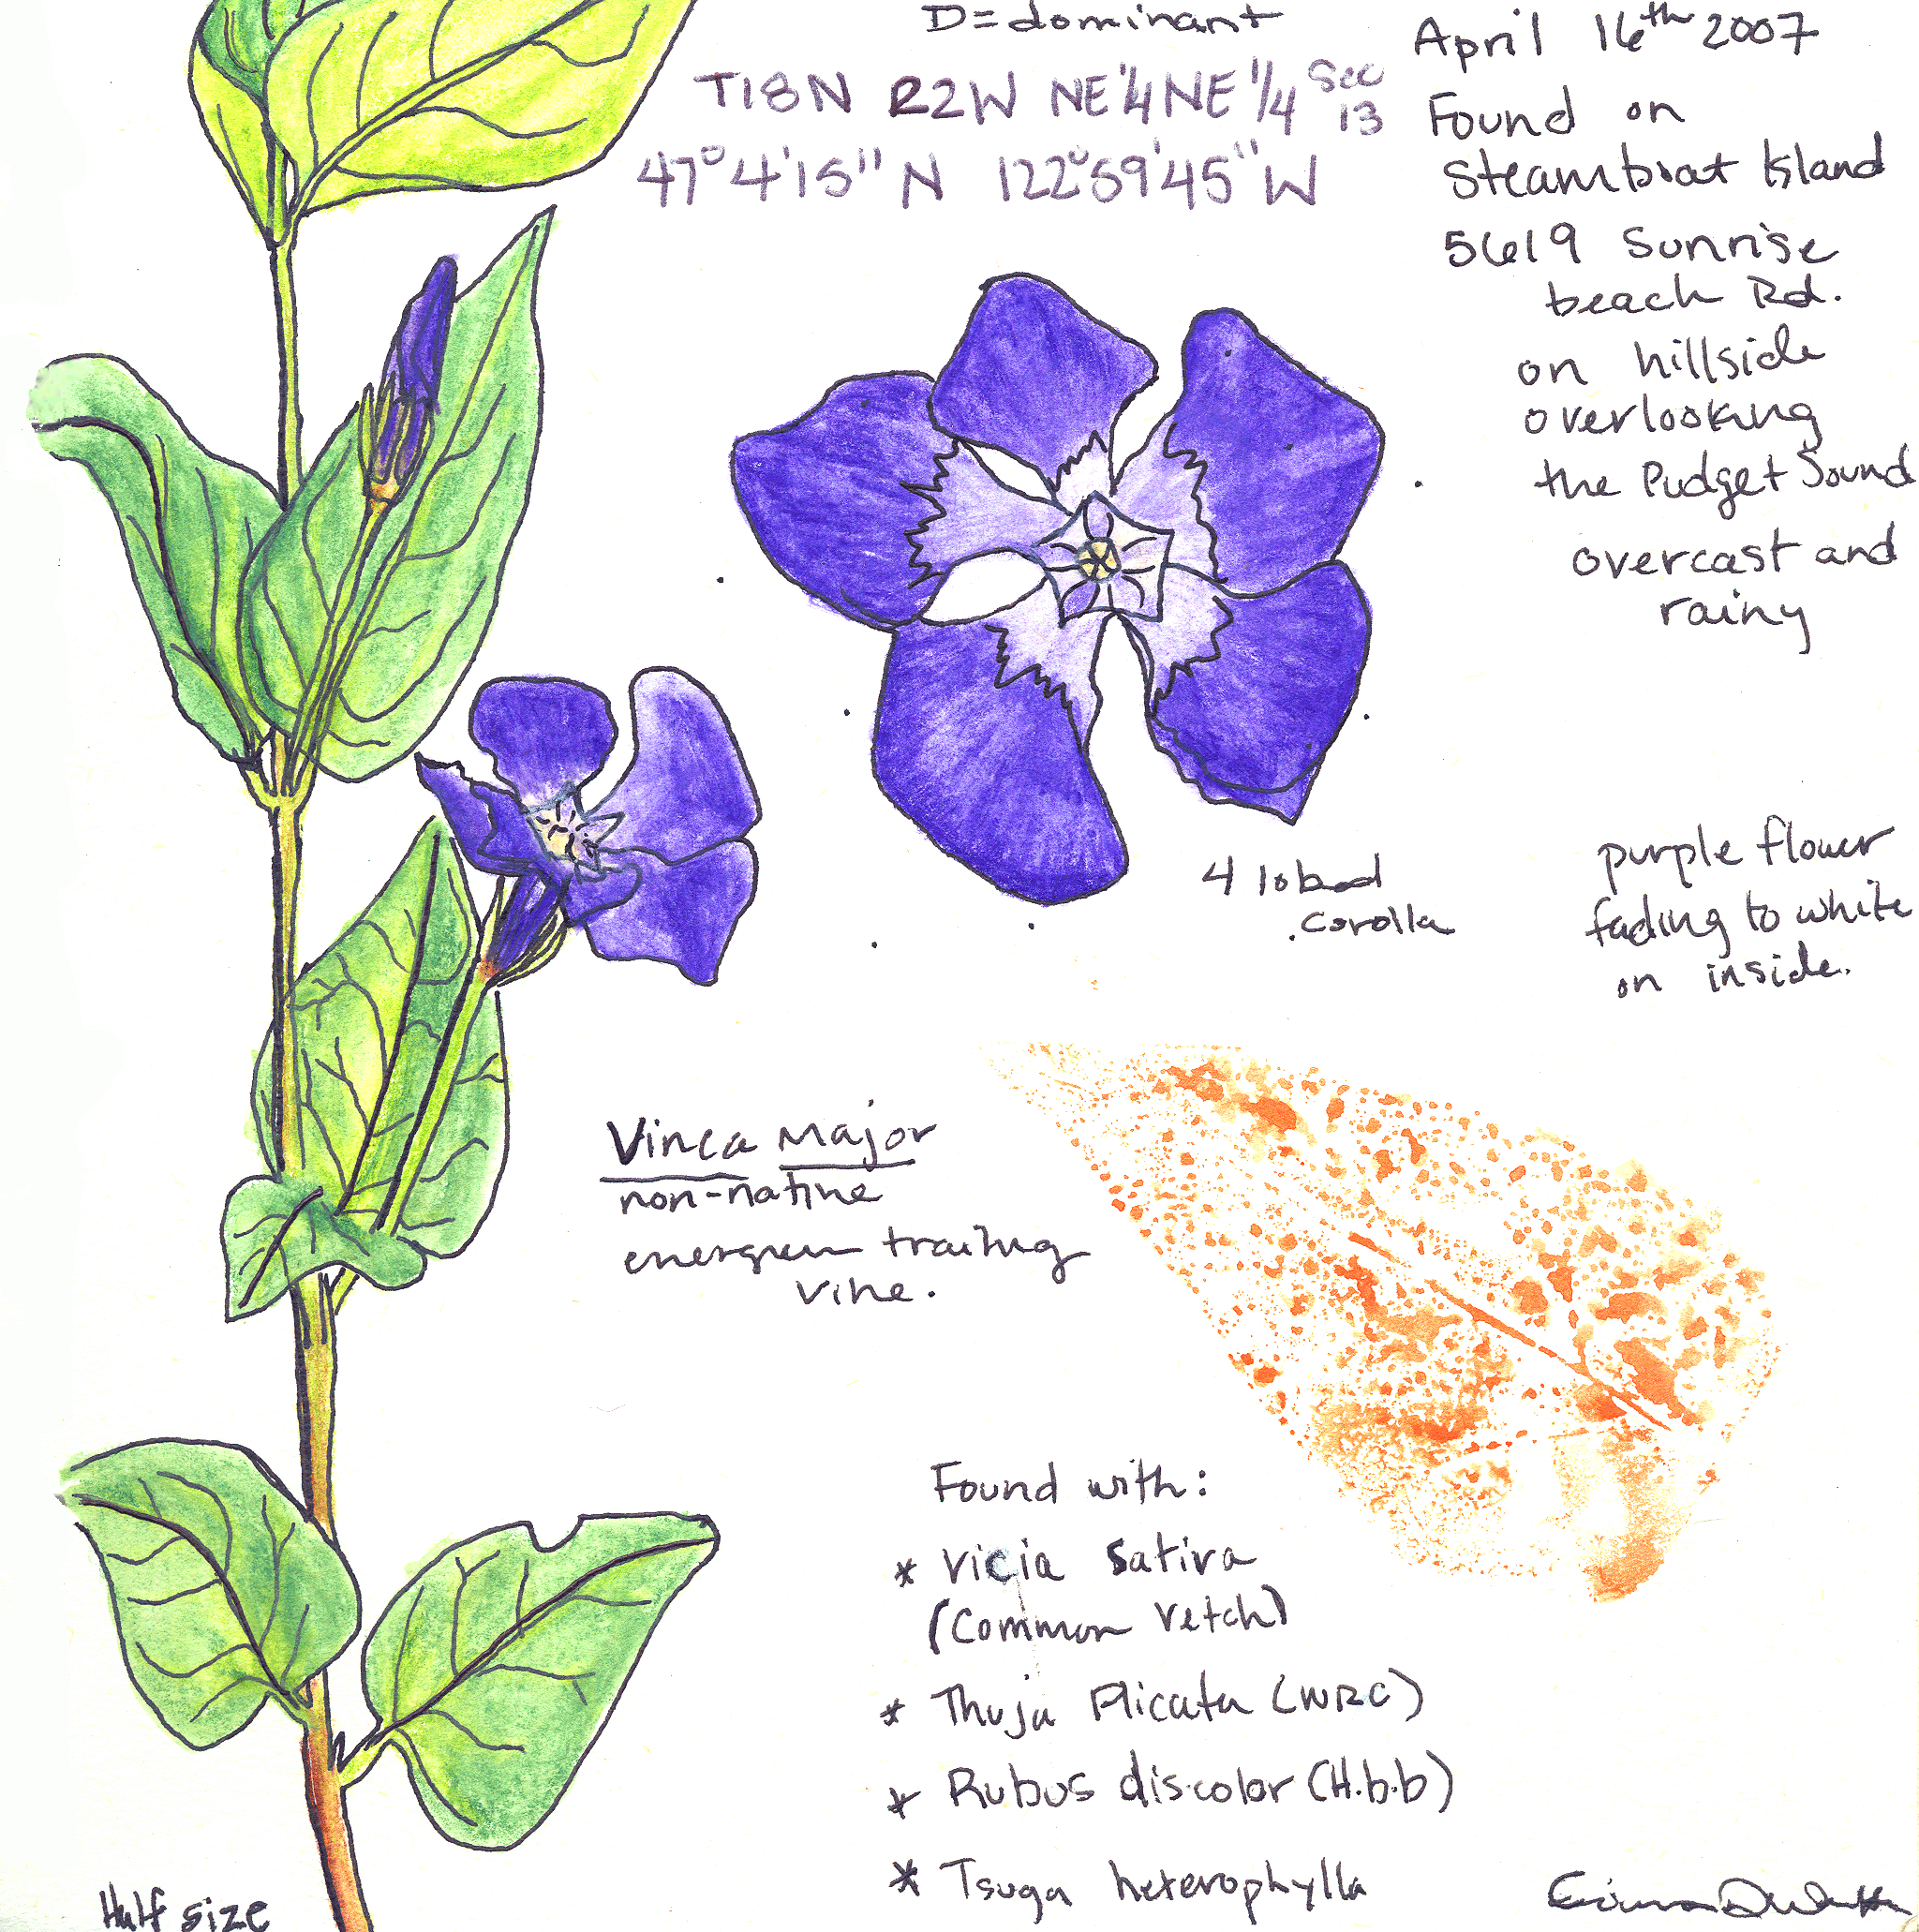 D=dominant
T18N R2W NE¼NE¼ Sec 13
47°4'15"N 122°59'45"W
April 16th 2007
Found on
Steamboat Island
5619 Sunrise
beach Rd.
on hillside
overlooking
the Pudget Sound
overcast and
rainy
4 lobed
corolla
purple flower
fading to white
on inside.
Vinca Major
non-native
evergreen trailing
vine.
Found with:
* Vicia sativa
(Common Vetch)
* Thuja Plicata (WRC)
* Rubus discolor (H.b.b)
* Tsuga heterophylla
Half size